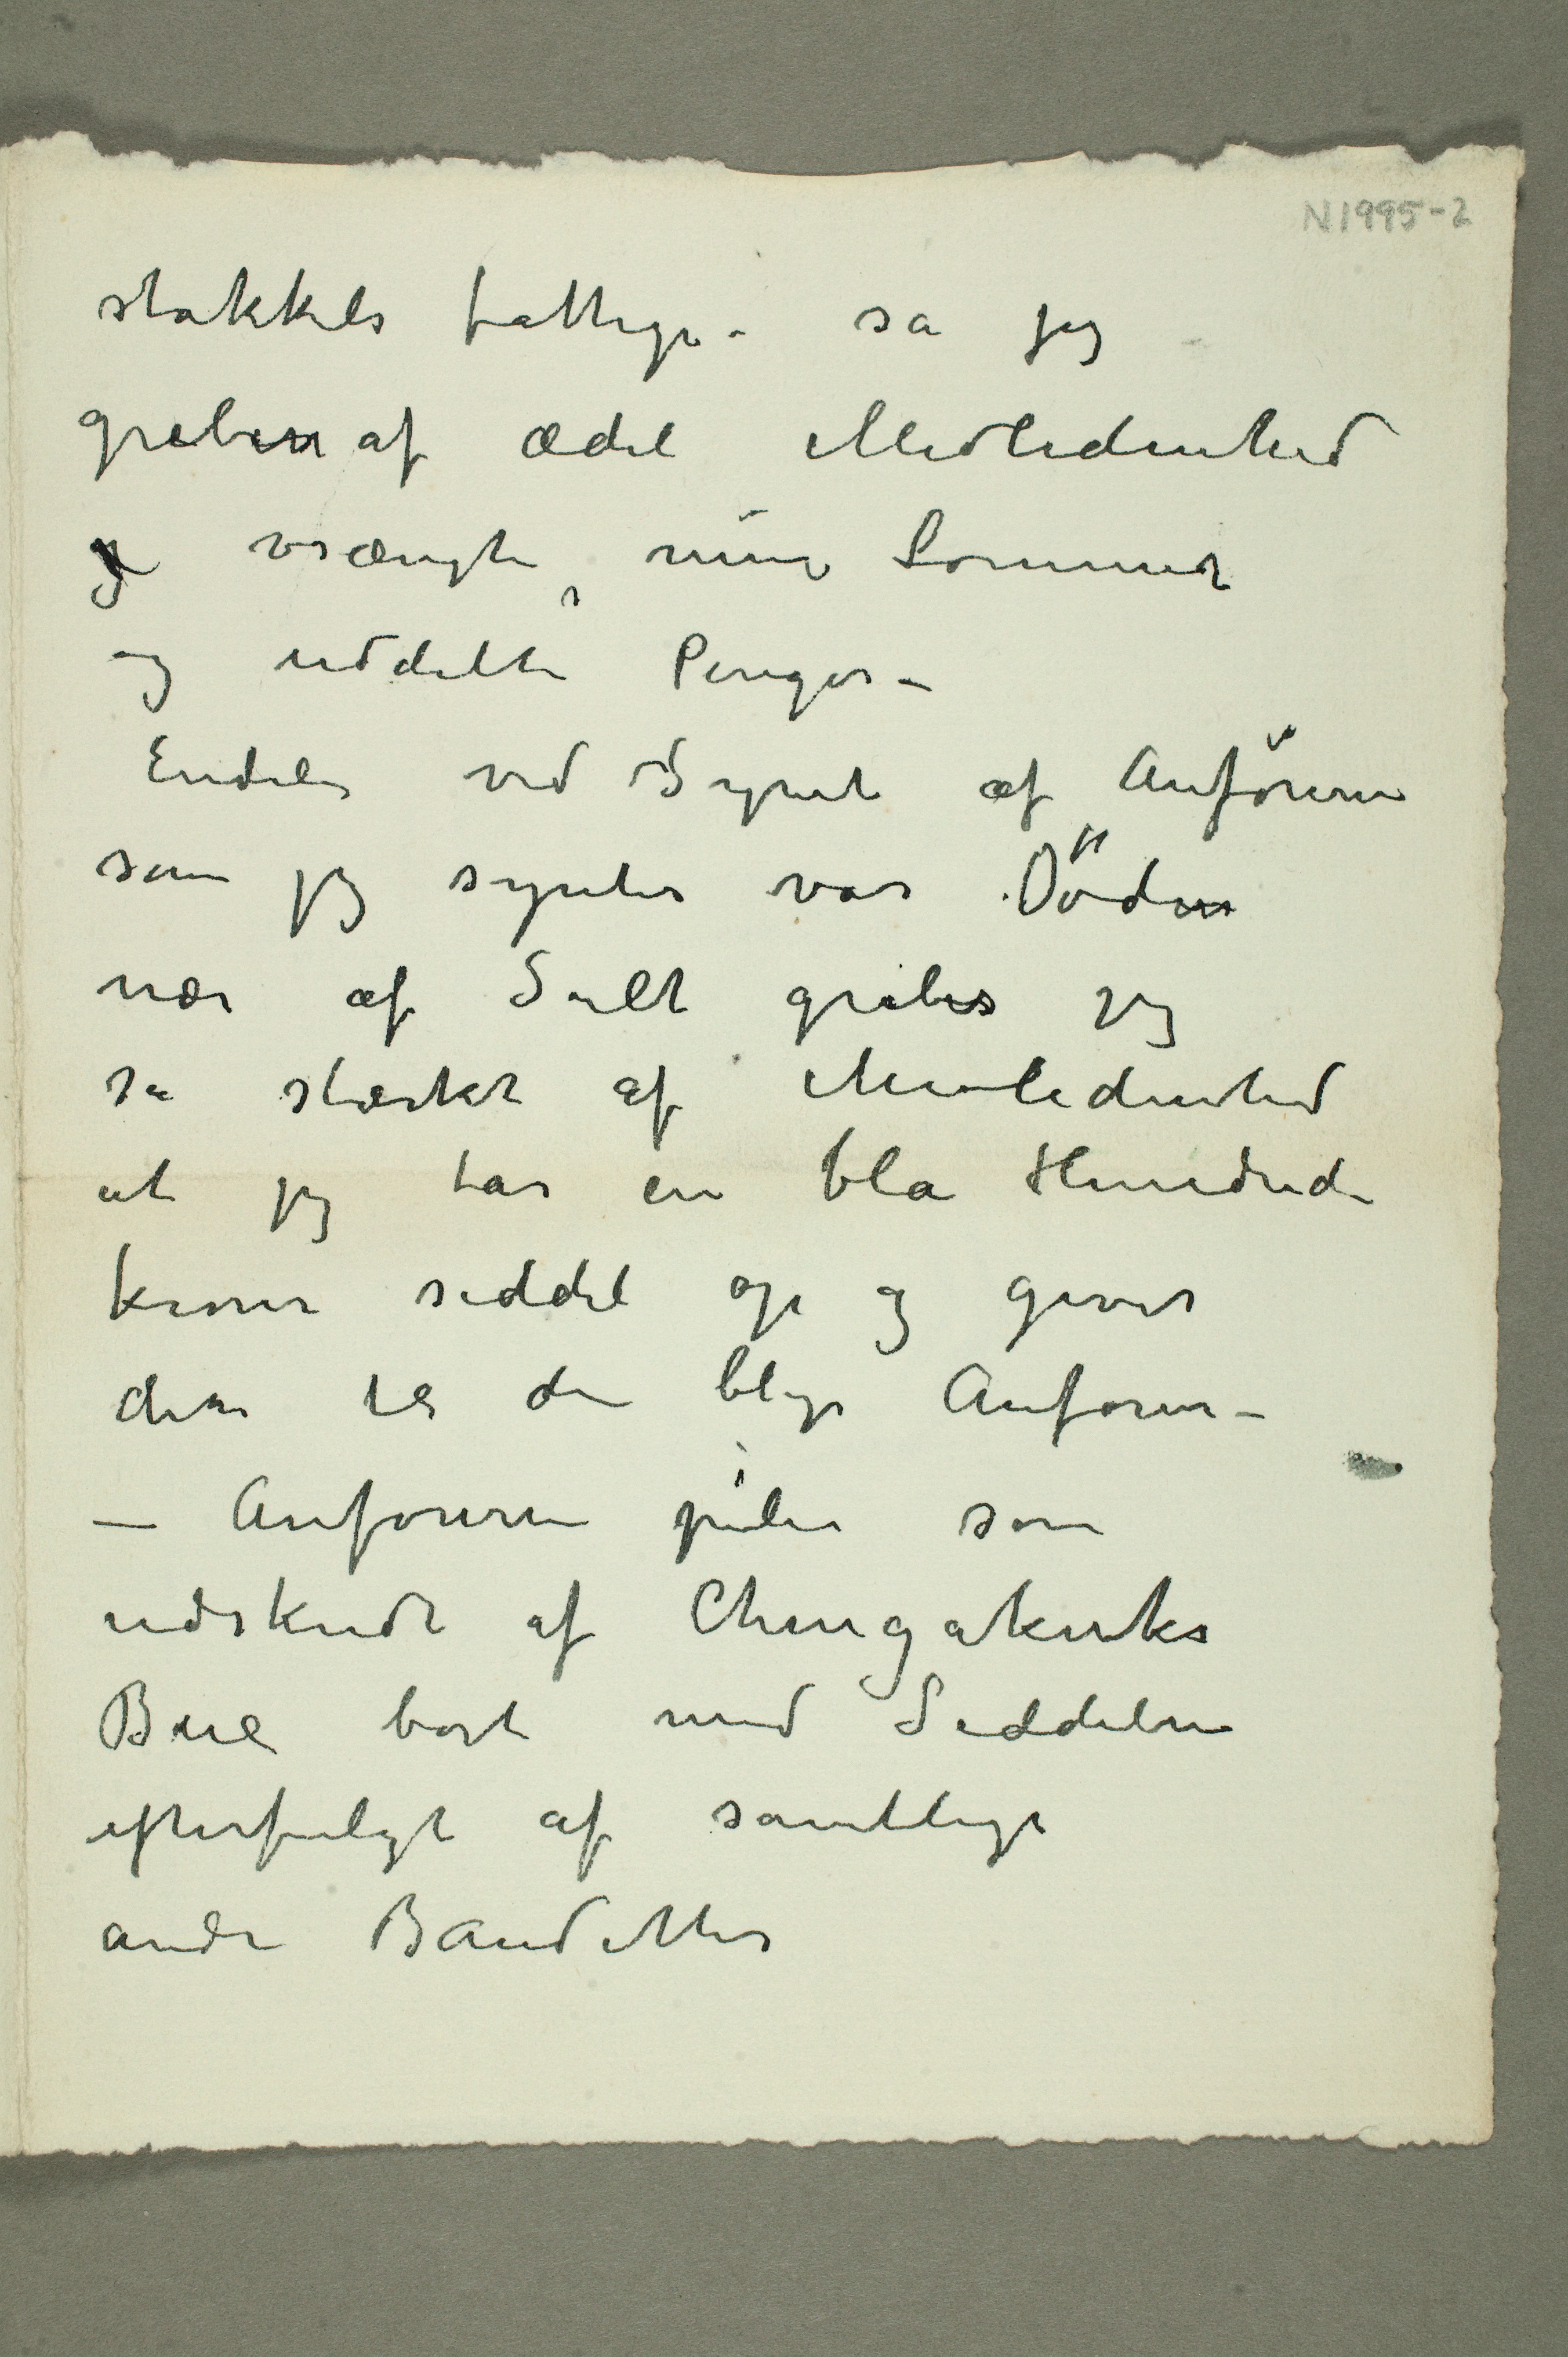 N1995-2
stakkels fattige – så jeg
greben af ædel Medlidenhed
vrængte mine Lommer
og uddelte Penger –
Endelig ved Synet af Anföreren
som jeg syntes var Döden
nær af Sult grebes jeg
så stærkt af Medlidenhed
at jeg tar en blå Hundrede
kroner seddel op og giver
den til den blege Anfører –
– Anføreren piler som
udskudt af Chingakuks
Bue bort med Seddelen
efterfulgt af samtlige
andre Banditter